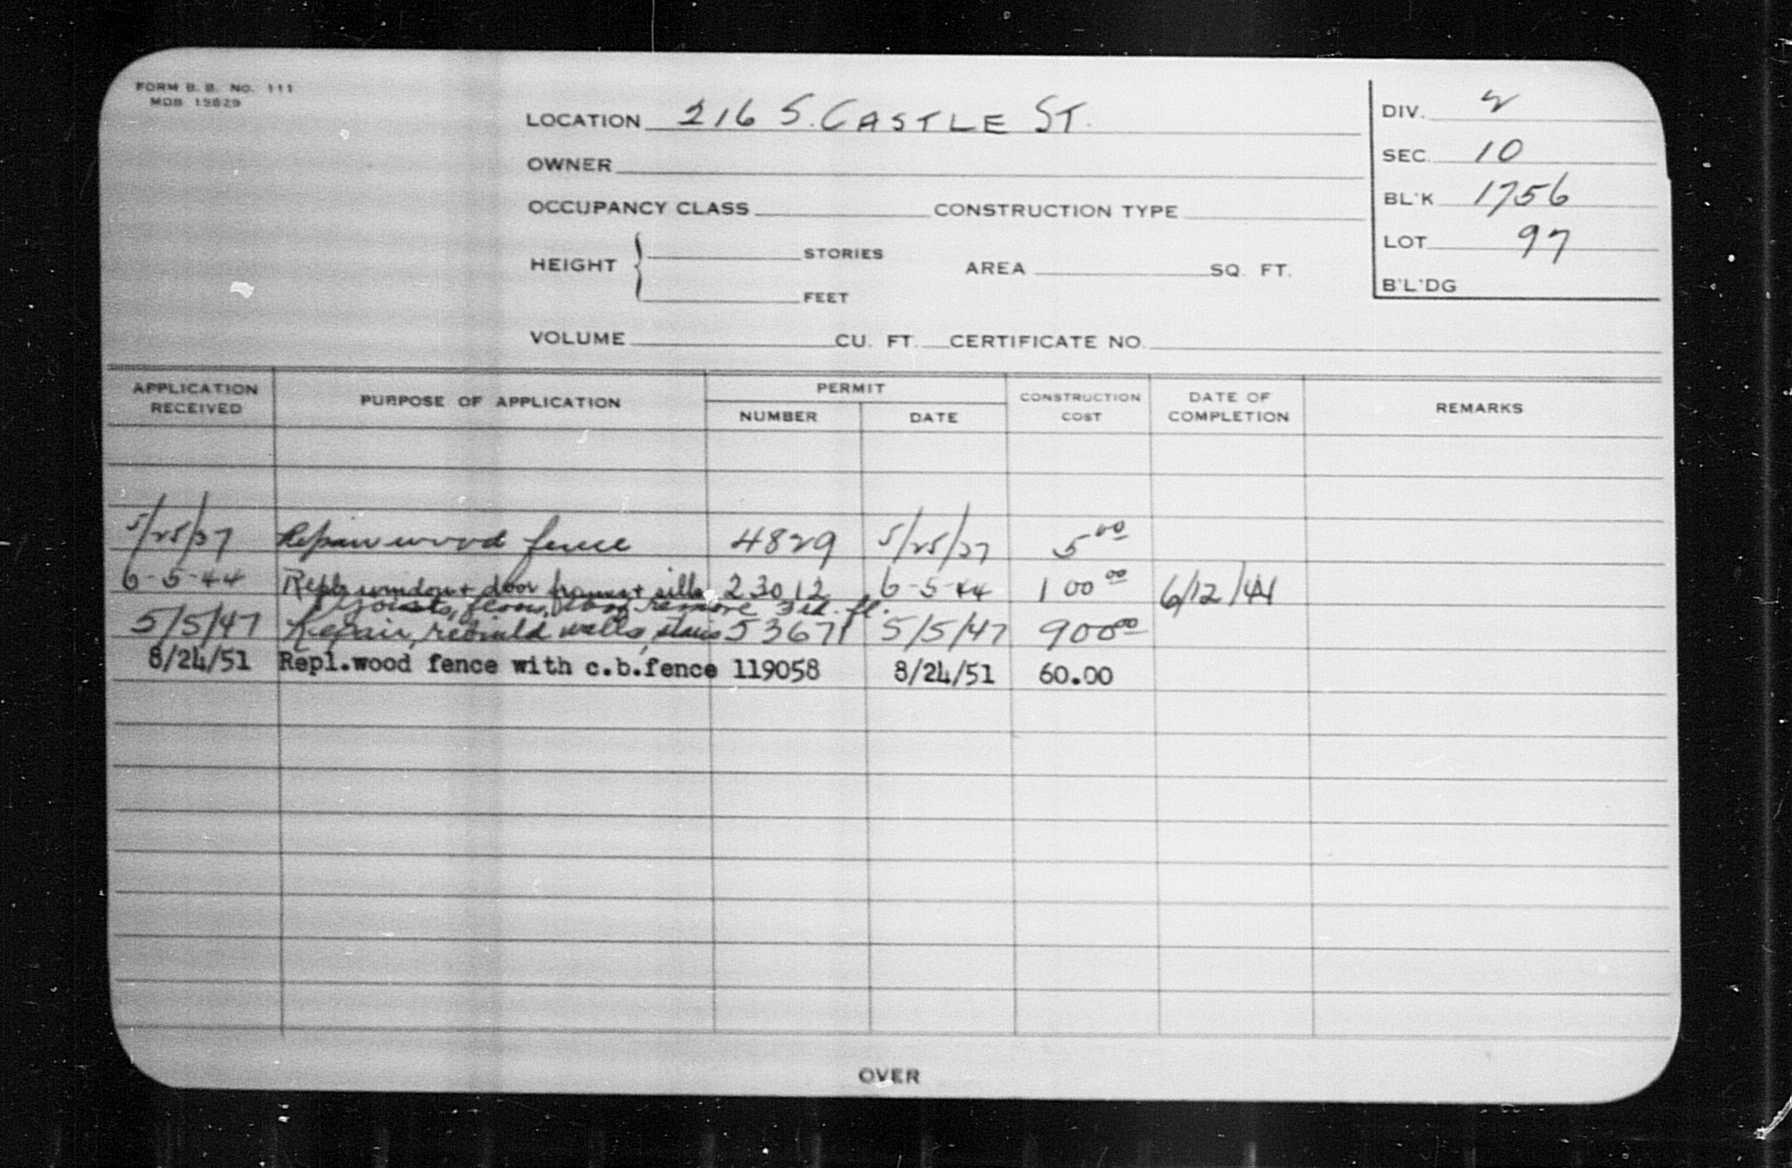 FORM B. B. NO. 111
MDB 15829
LOCATION 216 S. CASTLE ST.
DIV. 2
OWNER
SEC. 10
OCCUPANCY CLASS CONSTRUCTION TYPE
BL'K 1756
HEIGHT STORIES FEET AREA SQ. FT.
LOT 97
B'L'DG
VOLUME CU. FT. CERTIFICATE NO.
APPLICATION RECEIVED PURPOSE OF APPLICATION PERMIT NUMBER DATE CONSTRUCTION COST DATE OF COMPLETION REMARKS
5/25/37 Repair wood fence 4829 5/25/37 5 00
6-5-44 Repl. window + door frames + sills 23012 6-5-44 100 00 6/12/44
joists, floor, remove 3rd. fl.
5/5/47 Repair, rebuild walls, stairs 53671 5/5/47 900 00
8/24/51 Repl.wood fence with c.b.fence 119058 8/24/51 60.00
OVER